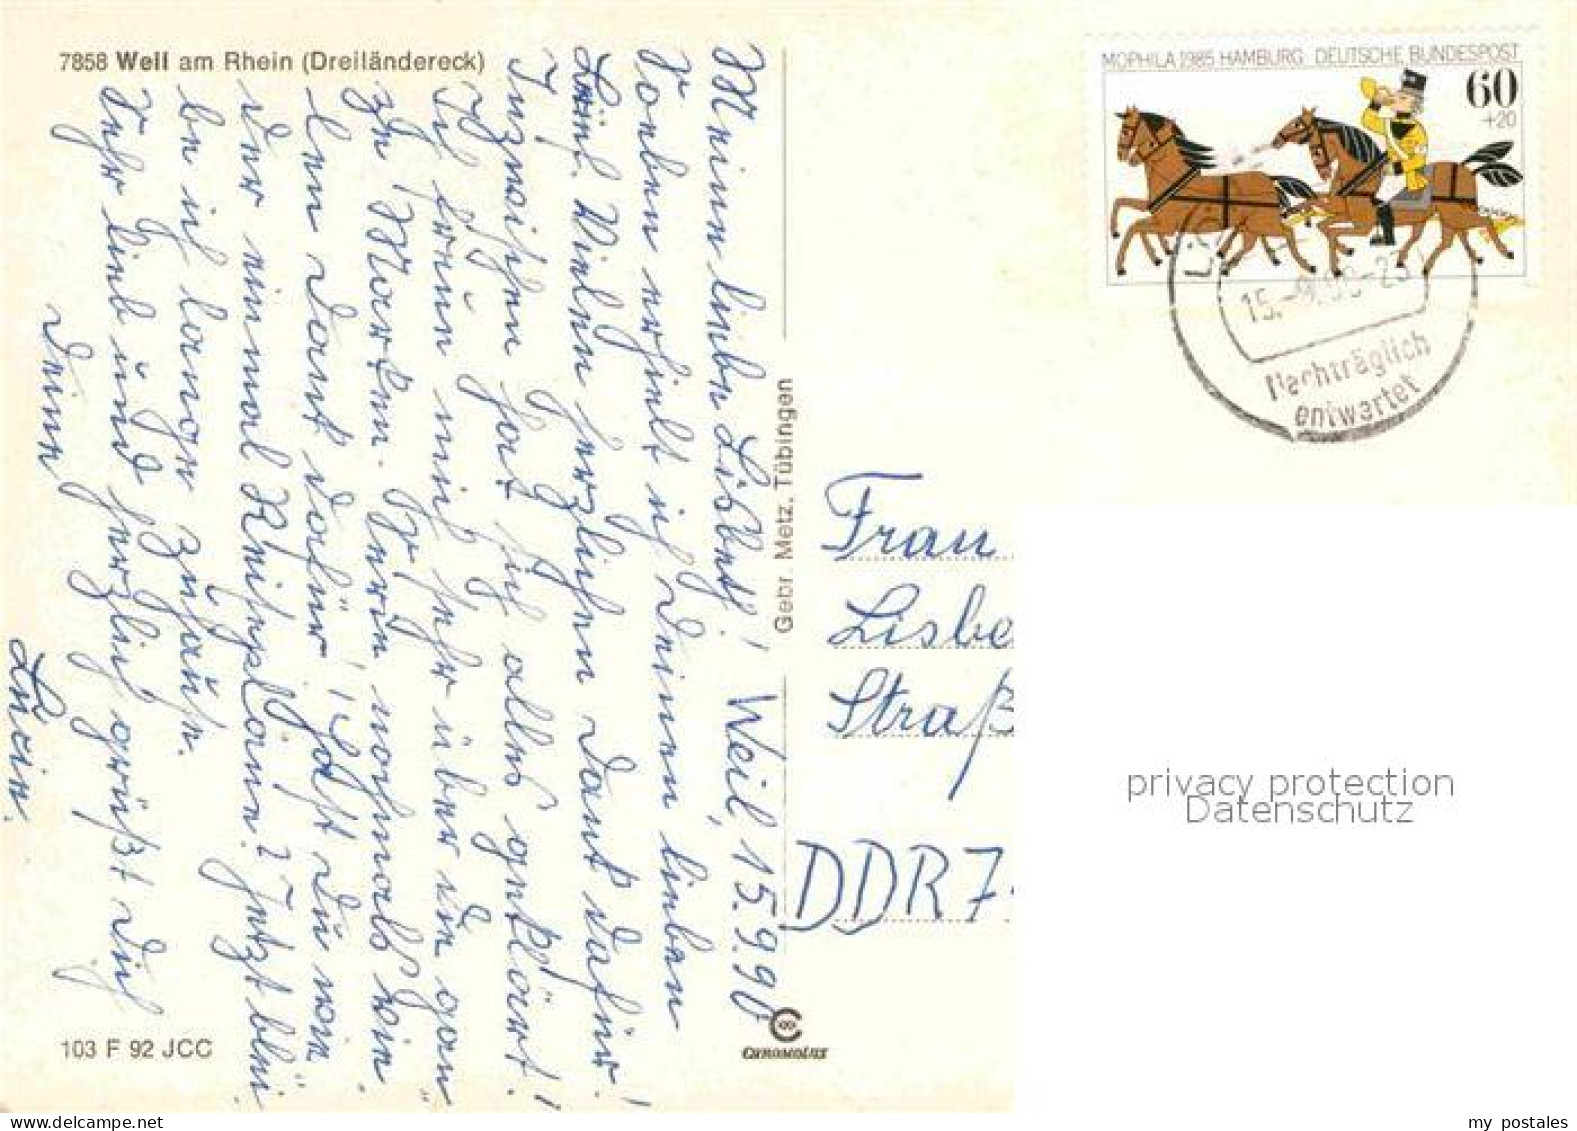 7858 Weil am Rhein (Dreiländereck)
MOPHILA 1985 HAMBURG DEUTSCHE BUNDESPOST
60
+20
15.-9.90-23
Nachträglich
entwertet
Weil, 15.9.90
Meine liebe Lisbeth!
Soeben erhielt ich Deinen lieben
Brief. Vielen herzlichen Dank dafür!
Inzwischen hat sich alles geklärt!
Ich freue mich sehr über die
Marken. Dank dafür! Hast Du
wieder einmal Reisepläne? Jetzt blei-
be ich länger zuhause.
Sehr lieb und herzlich grüßt Dich
Deine
Lucie.
Gebr. Metz, Tübingen
Frau
Lisbe
Straß
DDR 7
103 F 92 JCC
CHROMOLUX
privacy protection
Datenschutz
my postales